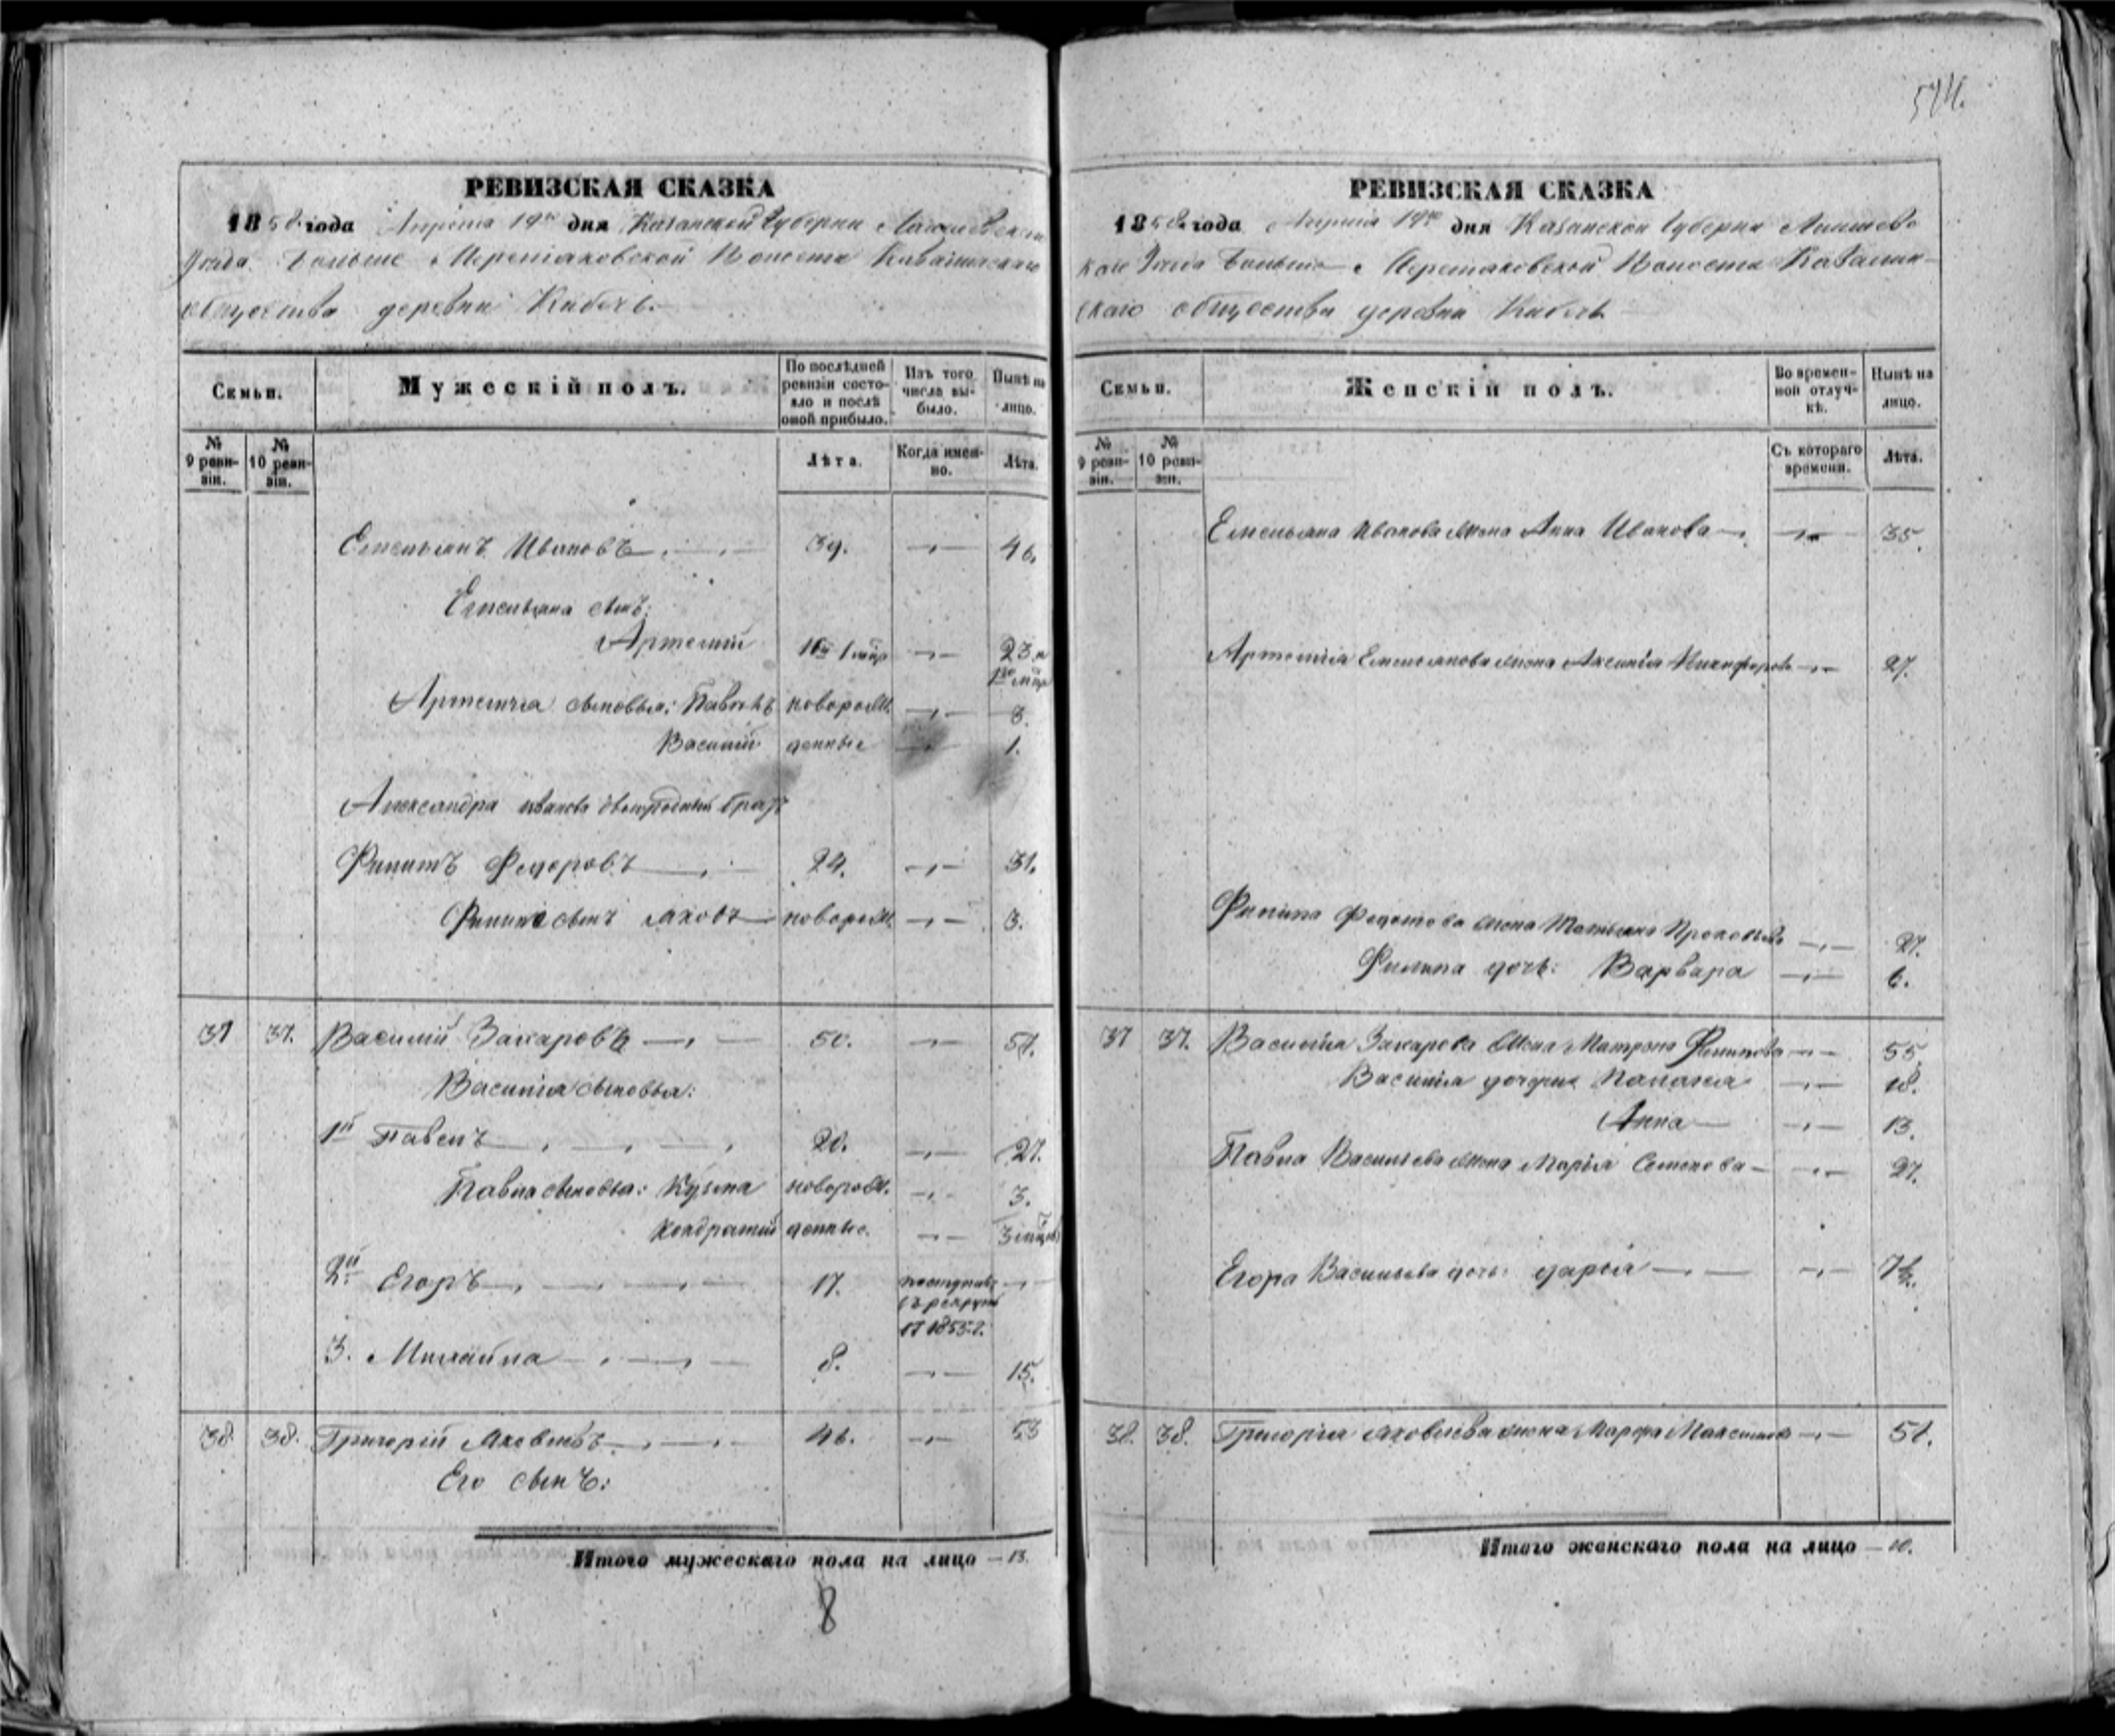 574.
РЕВИЗСКАЯ СКАЗКА
1858 года Апреля 19го дня Казанской Губерніи Лаишевскаго
Уезда Больше Меретяковской Волости
общества деревни Кибечь.
Семьи.
Мужескій полъ.
По послѣдней ревизіи состояло и послѣ оной прибыло.
Изъ того числа выбыло.
Нынѣ на лицо.
№ 9 ревизіи.
№ 10 ревизіи.
Лѣта.
Когда именно.
Лѣта.
Емельянъ Ивановъ 39. 46.
Емельяна сынъ:
Артемій 23
Артемія сыновья: Павелъ новорож. 3.
Василій денные 1.
Александра Иванова двоюродный братъ
Филипъ Федоровъ 24. 31.
Филипа сынъ Яковъ новорож. 3.
37 37. Василій Захаровъ 50. 57.
Василія сыновья:
1й Павелъ 20. 27.
Павла сыновья: Кузма новорож. 3.
Кондратій денные. 3
2й Егоръ 17. поступилъ
въ рекруты
1855 г.
3. Михайла 8. 15.
38. 38. Григорій Яковлевъ 46. 53
Его сынъ:
Итого мужескаго пола на лицо — 13.
8
РЕВИЗСКАЯ СКАЗКА
1858 года Апреля 19го дня Казанской Губерніи Лаишев
скаго Уезда Больше Меретяковской Волости
скаго общества деревни Кибечь
Семьи.
Женскій полъ.
Во временной отлучкѣ.
Нынѣ на лицо.
№ 9 ревизіи.
№ 10 ревизіи.
Съ котораго времени.
Лѣта.
Емельяна Иванова жена Анна Иванова 35.
Артемія Емельянова жена Аксинья Никифорова 27.
Филипа Федотова жена Татьяна Прокопьева 27.
Филипа дочь: Варвара 6.
37 37. Василія Захарова жена Матрена Филипова 55.
Василія дочери Палагея 18.
Анна 13.
Павла Васильева жена Марія Семенова 27.
Егора Васильева дочь: Дарья
38. 38. Григорія Яковлева жена Марфа Максимова 51.
Итого женскаго пола на лицо — 10.